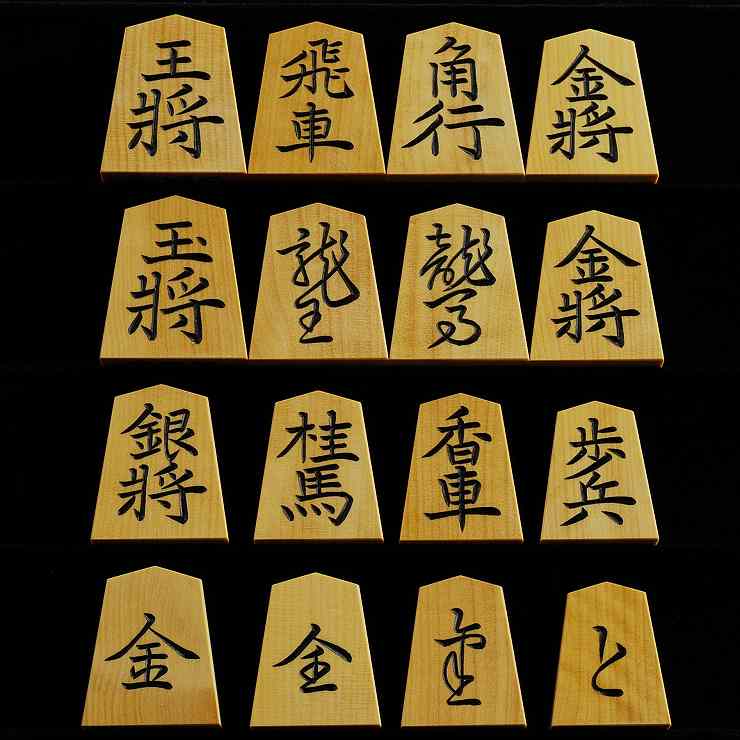 王將
飛車
角行
金將
玉將
龍王
龍馬
金將
銀將
桂馬
香車
歩兵
金
全
と